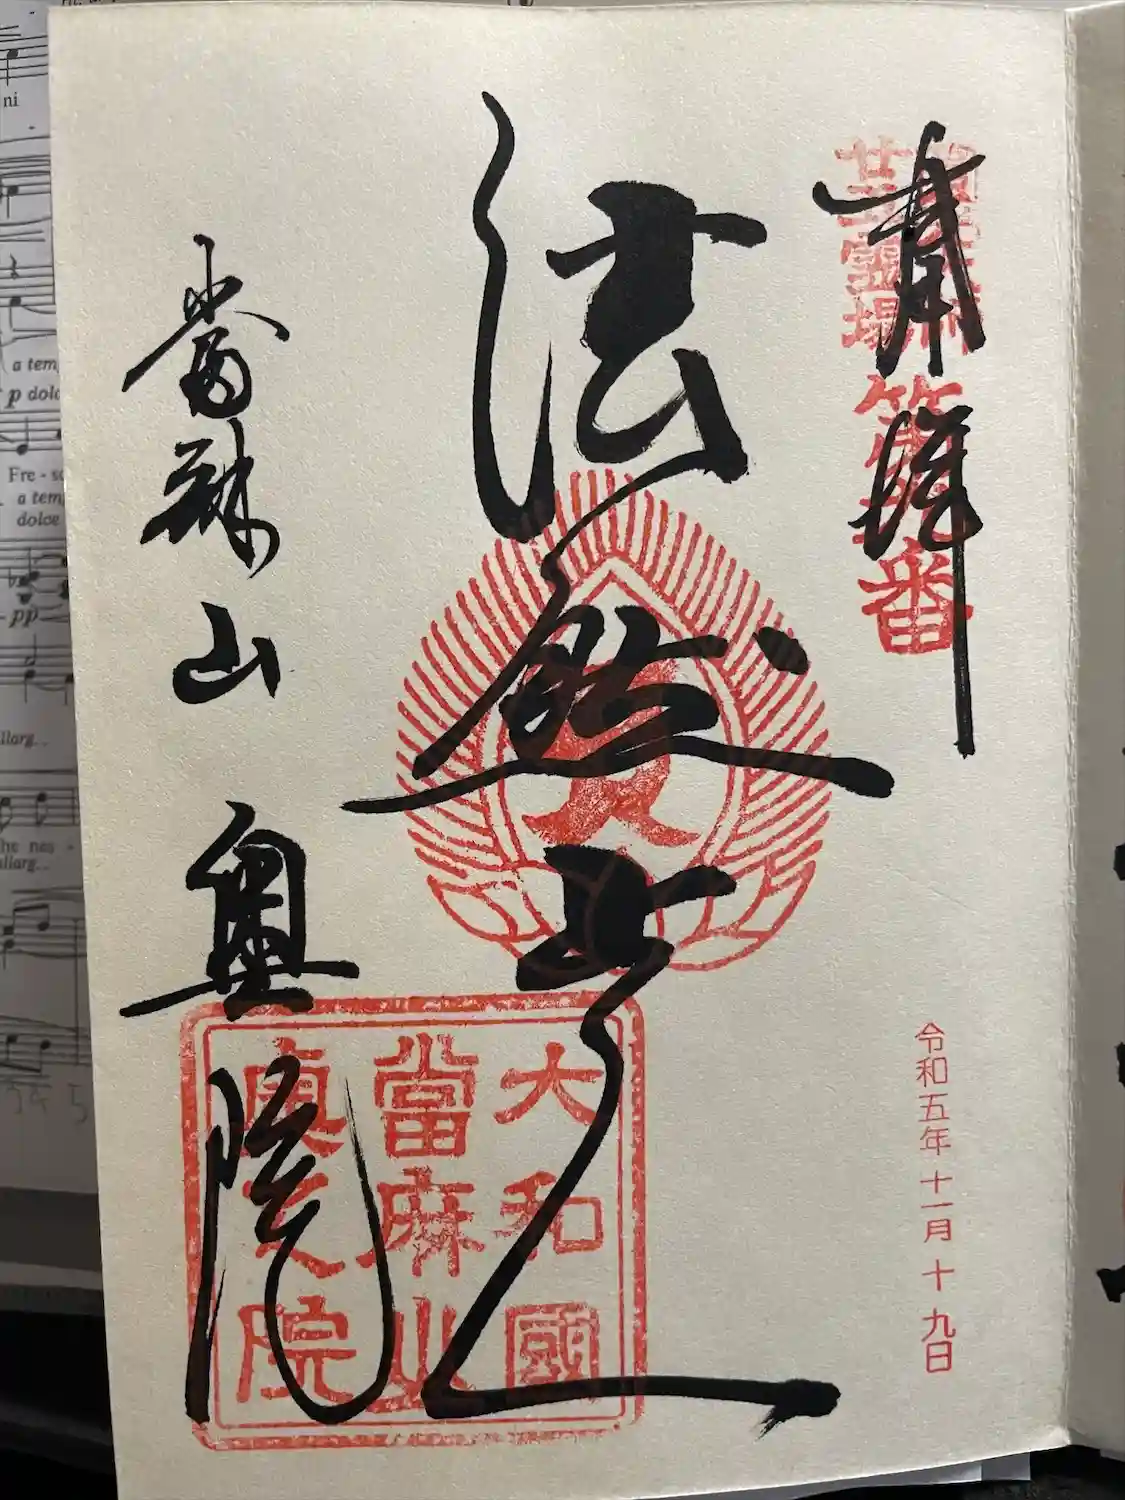 奉拝
廿五霊場
第九番
法然上人
令和五年十一月十九日
當麻山奥院
大和國
當麻山
奥之院
ni
a tem
p dolc
Fre - s
a tem
dolce
pp
llarg..
he nes -
allarg..